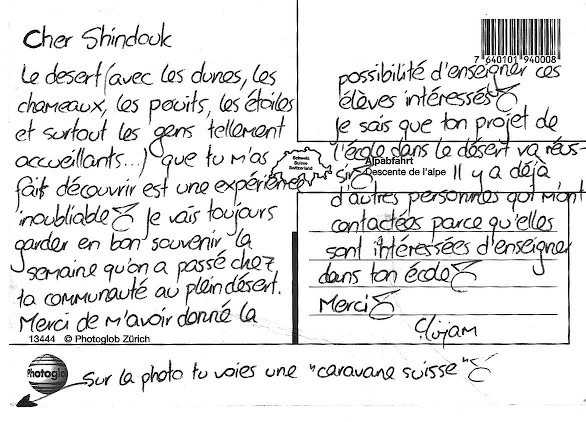 Cher Shindouk
Le desert (avec les dunes, les
chameaux, les pouits, les étoiles
et surtout les gens tellement
accueillants...) que tu m'as
fait découvrir est une expérience
inoubliable Je vais toujours
garder en bon souvenir la
semaine qu'on a passé chez
ta communauté au plein désert.
Merci de m'avoir donné la
possibilité d'enseigner ces
élèves intéressés
Je sais que ton projet de
l'école dans le désert va réus-
sir Il y a déjà
d'autres personnes qui m'ont
contactées parce qu'elles
sont intéressées d'enseigner
dans ton école
Merci
Sur la photo tu voies une "caravane suisse"
7 640101 940008
Schweiz
Suisse
Switzerland
Alpabfahrt
Descente de l'alpe
13444 © Photoglob Zürich
Photoglob